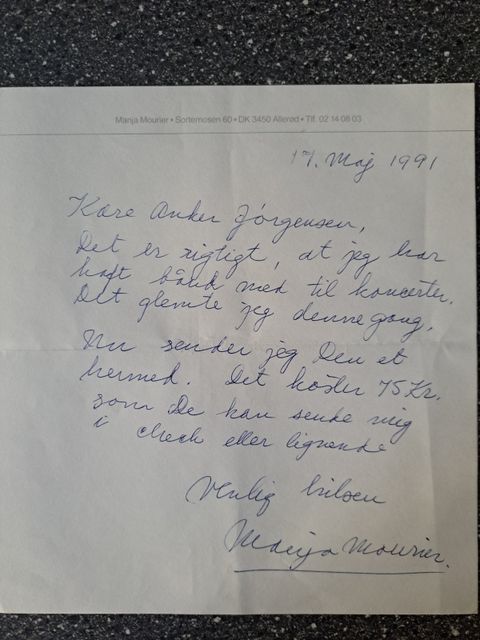 Manja Mourier • Sortemosen 60 • DK 3450 Allerød • Tlf. 02 14 08 03
17. Maj 1991
Kære Anker Jørgensen,
Det er rigtigt, at jeg har
haft bånd med til koncerter.
Det glemte jeg denne gang.
Nu sender jeg Dem et
hermed. Det koster 75 Kr.
som De kan sende mig
i check eller lignende
Venlig hilsen
Manja Mourier.